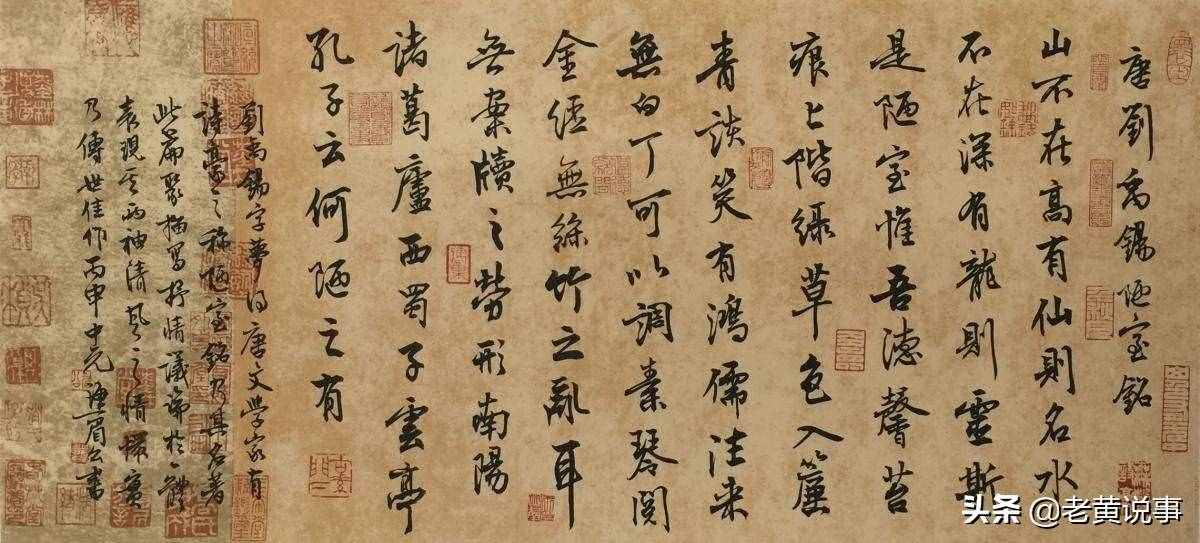 唐劉禹錫陋室銘
山不在高有仙則名水
不在深有龍則靈斯
是陋室惟吾德馨苔
痕上階緑草色入簾
青談笑有鴻儒往来
無白丁可以調素琴閱
金經無絲竹之亂耳
無案牘之勞形南陽
諸葛廬西蜀子雲亭
孔子云何陋之有
劉禹錫字夢得唐文學家有
詩豪之稱陋室銘乃其名著
此篇聚描寫抒情議論於一體
表現了兩袖清風之情操實
乃傳世佳作丙申中元眉公書
头条 @老黄说事